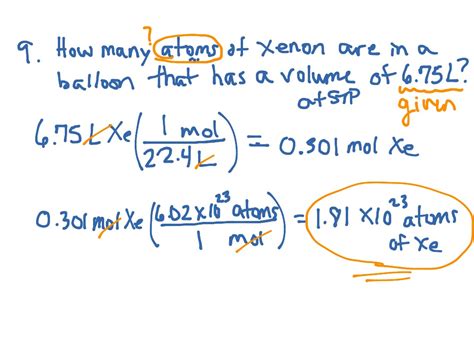 9. How many ? atoms of xenon are in a
balloon that has a volume of 6.75L?
at STP given
6.75 L Xe (1 mol / 22.4 L) = 0.301 mol Xe
0.301 mol Xe (6.02 x 10^23 atoms / 1 mol) = 1.81 x 10^23 atoms
of Xe